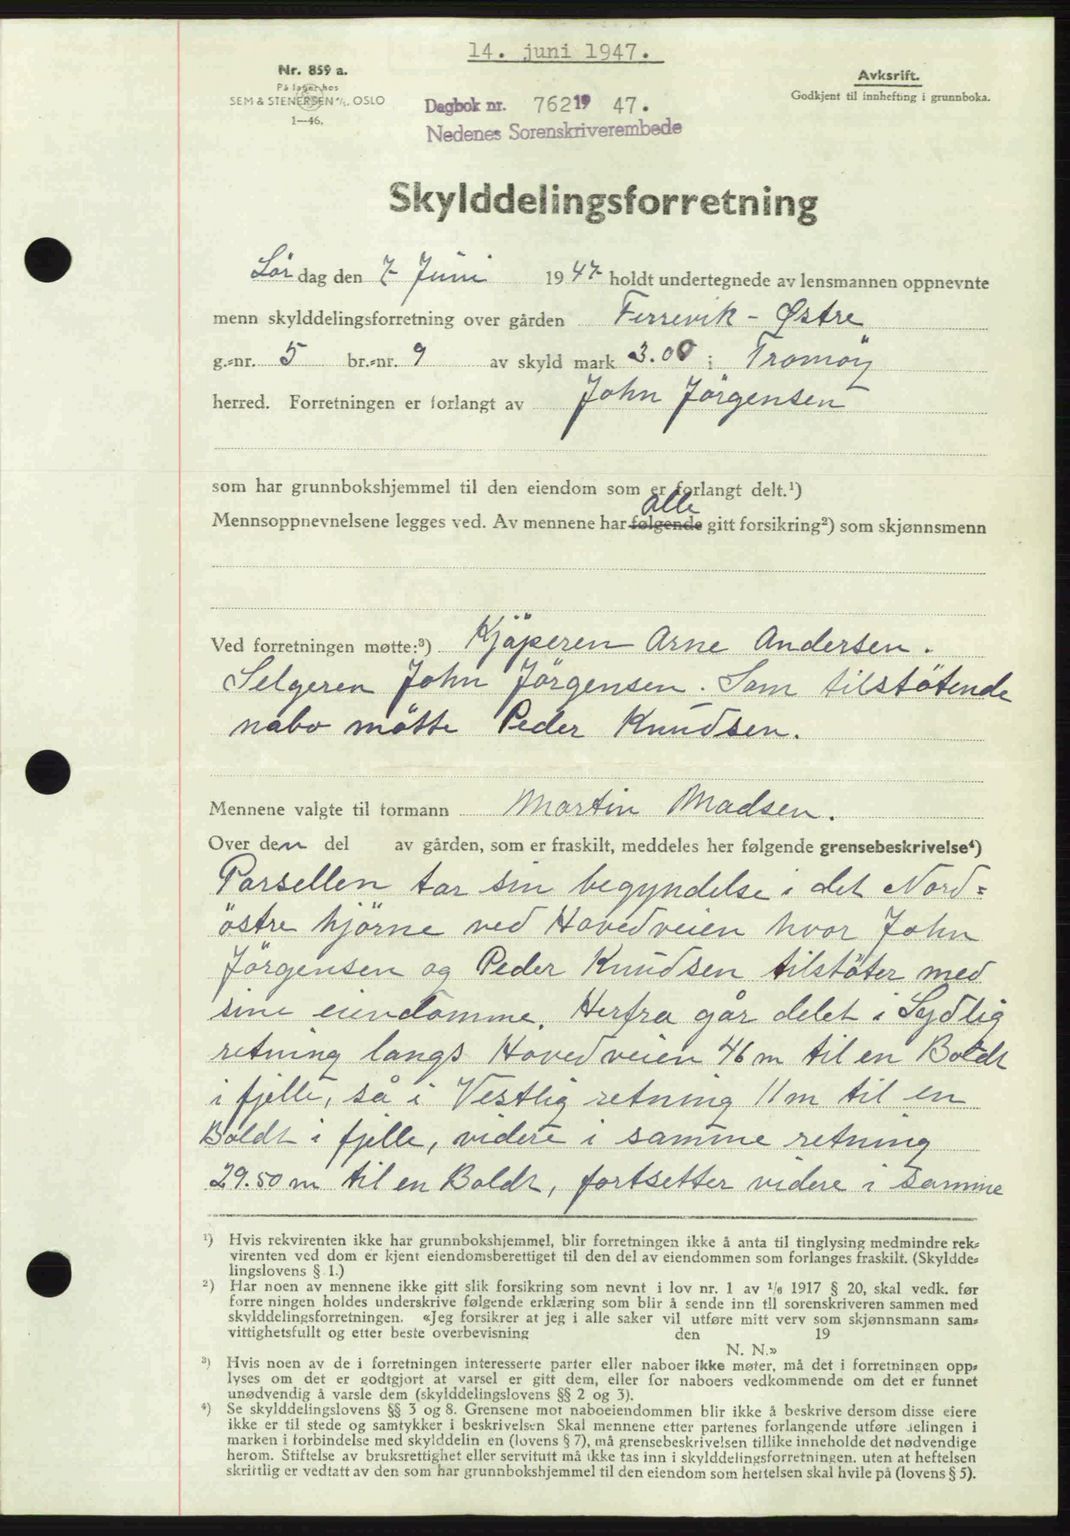 14. juni 1947.
Nr. 859 a.
På lager hos
SEM & STENERSEN A/S, OSLO
1—46.
Avkskrift.
Godkjent til innhefting i grunnboka.
Dagbok nr. 762 19 47.
Nedenes Sorenskriverembede
Skylddelingsforretning
Lör dag den 7 Juni 1947 holdt undertegnede av lensmannen oppnevnte
menn skylddelingsforretning over gården Ferrevik - Østre
g.-nr. 5 br.-nr. 9 av skyld mark 3.00 i Tromöy
herred. Forretningen er forlangt av John Jörgensen
som har grunnbokshjemmel til den eiendom som er forlangt delt.¹)
alle
Mennsoppnevnelsene legges ved. Av mennene har følgende gitt forsikring²) som skjønnsmenn
Ved forretningen møtte:³) Kjöperen Arne Andersen.
Selgeren John Jörgensen. Som tilstötende
nabo mötte Peder Knudsen.
Mennene valgte til formann Martin Madsen.
Over den del av gården, som er fraskilt, meddeles her følgende grensebeskrivelse⁴)
Parsellen tar sin begyndelse i det Nord=
östre hjörne ved Hovedveien hvor John
Jörgensen og Peder Knudsen tilstöter med
sine eiendomme. Herfra går delet i Sydlig
retning langs Hovedveien 46 m til en Boldt
i fjelle, så i Vestlig retning 11 m til en
Boldt i fjelle, videre i samme retning
29.50 m til en Boldt, fortsetter videre i samme
¹) Hvis rekvirenten ikke har grunnbokshjemmel, blir forretningen ikke å anta til tinglysing medmindre rek-
virenten ved dom er kjent eiendomsberettiget til den del av eiendommen som forlanges fraskilt. (Skyldde-
lingslovens § 1.)
²) Har noen av mennene ikke gitt slik forsikring som nevnt i lov nr. 1 av 1/6 1917 § 20, skal vedk. før
forre ningen holdes underskrive følgende erklæring som blir å sende inn til sorenskriveren sammen med
skylddelingsforretningen. «Jeg forsikrer at jeg i alle saker vil utføre mitt verv som skjønnsmann sam-
vittighetsfullt og etter beste overbevisning den 19
N. N.»
³) Hvis noen av de i forretningen interesserte parter eller naboer ikke møter, må det i forretningen opp-
lyses om det er godtgjort at varsel er gitt dem, eller for naboers vedkommende om det er funnet
unødvendig å varsle dem (skylddelingslovens §§ 2 og 3).
⁴) Se skylddelingslovens §§ 3 og 8. Grensene mot naboeiendommen blir ikke å beskrive dersom disse eiere
ikke er til stede og samtykker i beskrivelsen Skal mennene etter partenes forlangende utføre delingen i
marken i forbindelse med skylddelin en (lovens § 7), må grensebeskrivelsen tillike inneholde det nødvendige
herom. Stiftelse av bruksrettighet eller servitutt må ikke tas inn i skylddelingsforretningen. uten at heftelsen
skriftlig er vedtatt av den som har grunnbokshjemmel til den eiendom som heftelsen skal hvile på (lovens § 5).